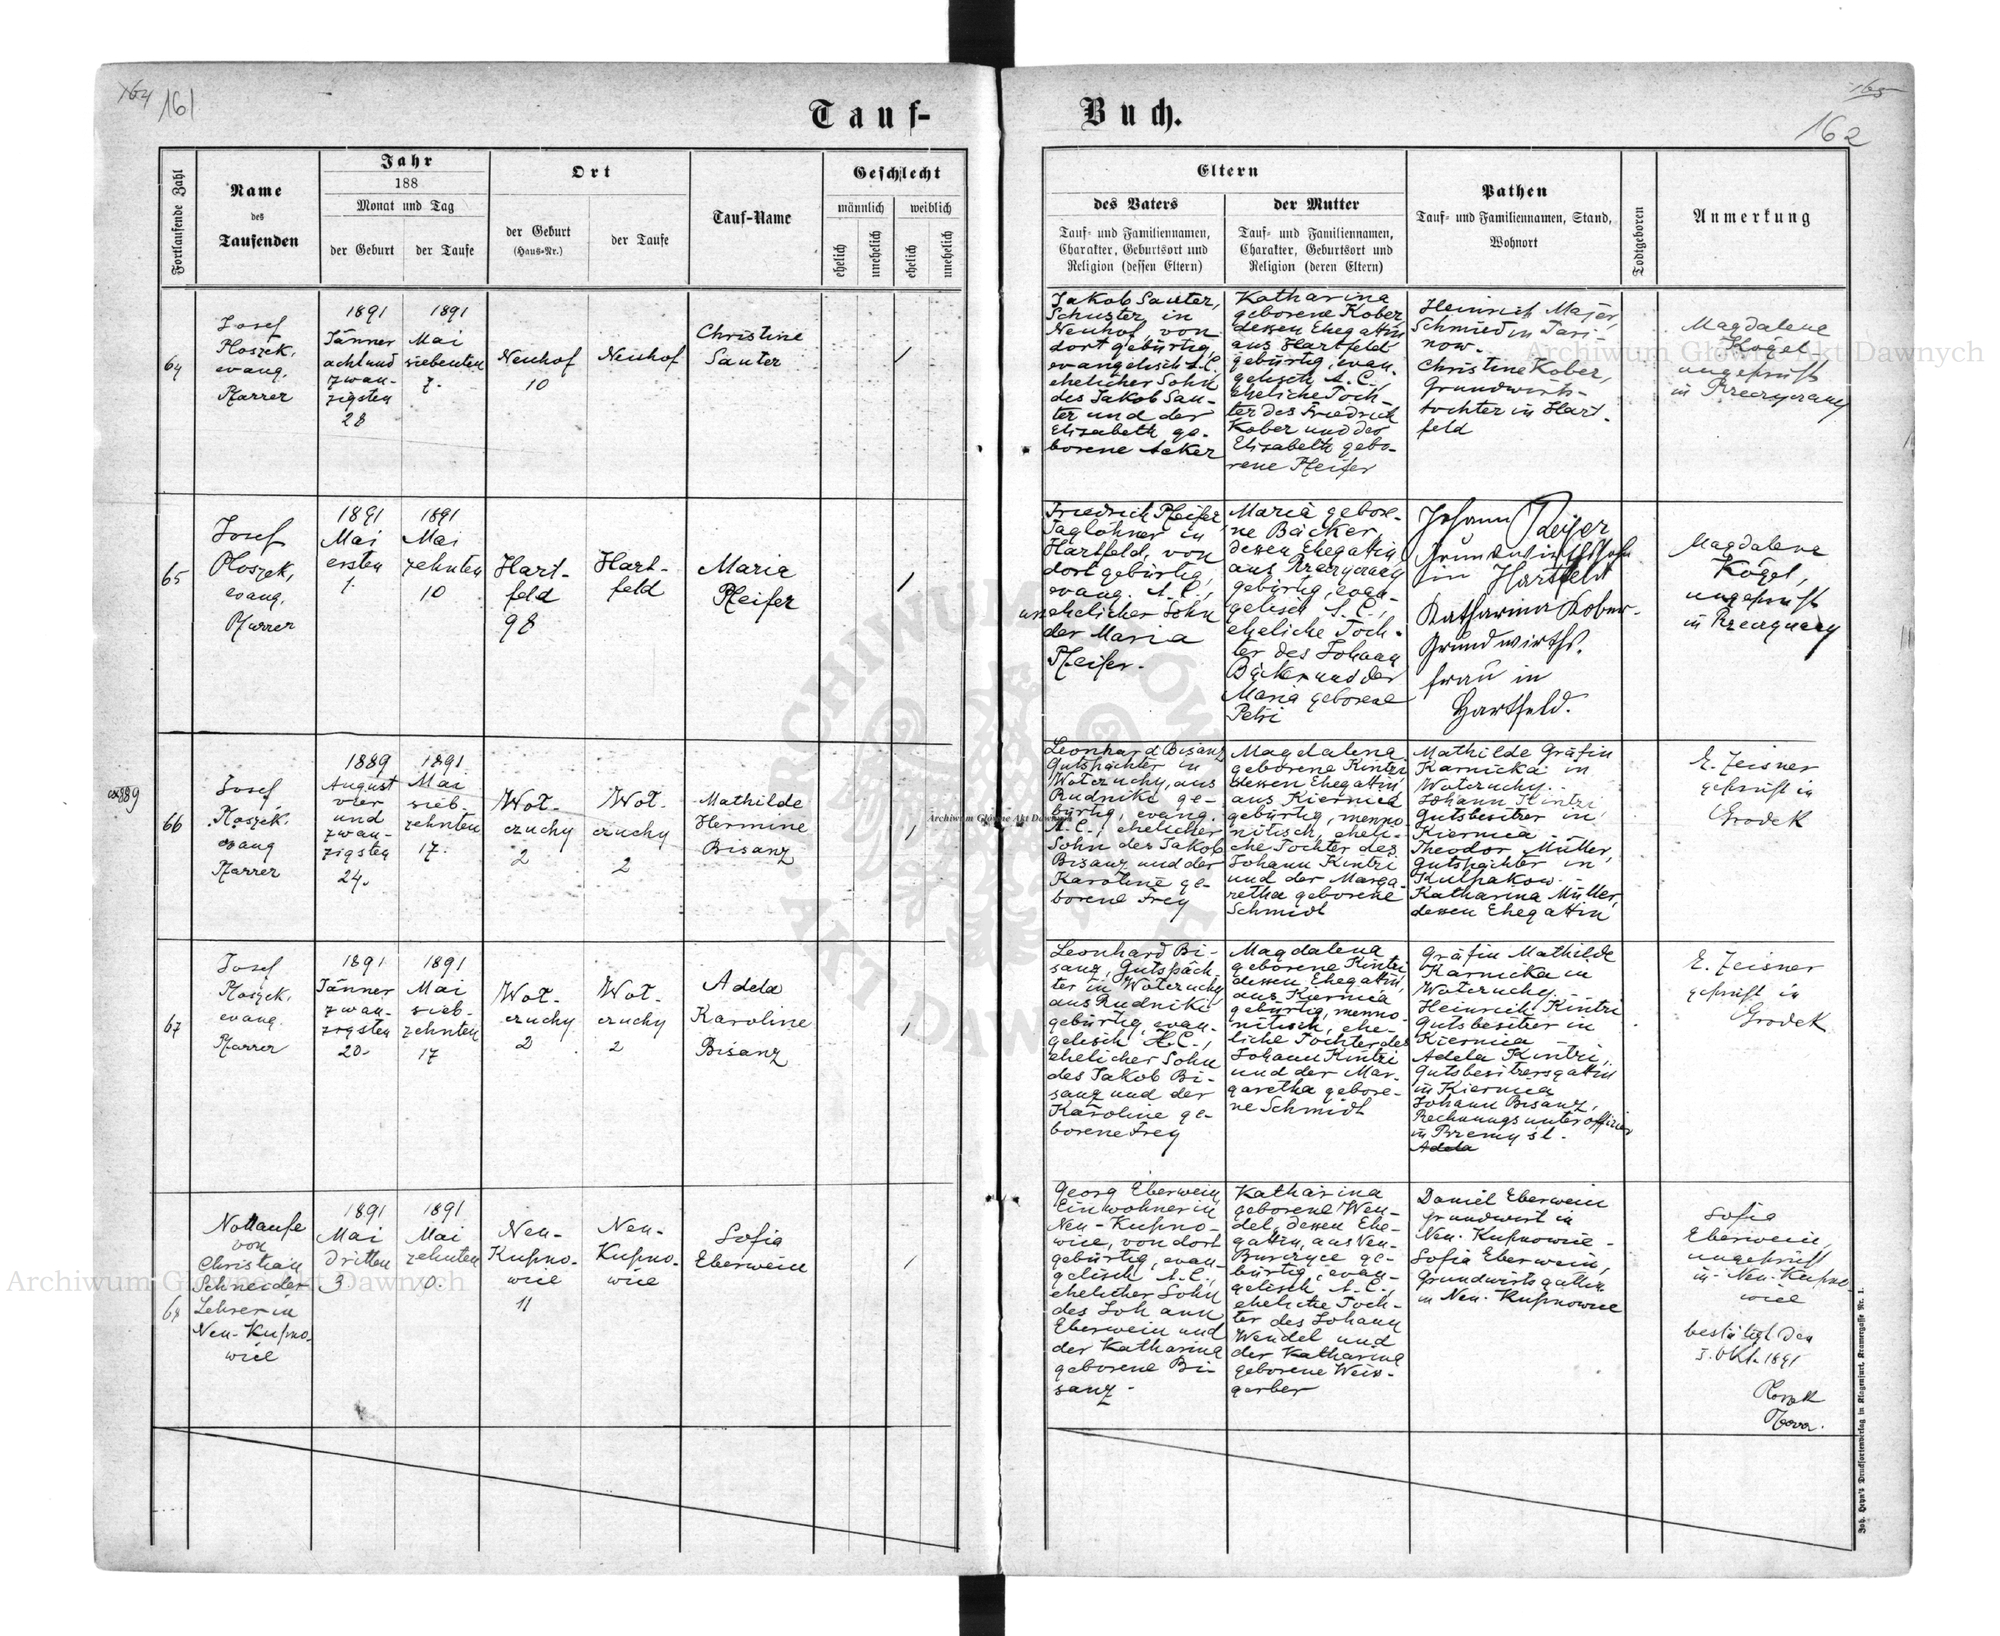 164 161
Tauf-
Buch.
165
162
Fortlaufende Zahl
Name
des
Taufenden
Jahr
188
Monat und Tag
der Geburt
der Taufe
Ort
der Geburt
(Haus-Nr.)
der Taufe
Tauf-Name
Geschlecht
männlich
weiblich
ehelich
unehelich
ehelich
unehelich
Eltern
des Vaters
Tauf- und Familiennamen,
Charakter, Geburtsort und
Religion (dessen Eltern)
der Mutter
Tauf- und Familiennamen,
Charakter, Geburtsort und
Religion (deren Eltern)
Pathen
Tauf- und Familiennamen, Stand,
Wohnort
Todtgeboren
Anmerkung
64
Josef
Ploszek,
evang.
Pfarrer
1891
Jänner
acht und
zwan-
zigsten
28
1891
Mai
siebenten
7.
Neuhof
10
Neuhof
Christine
Sauter
1
Jakob Sauter,
Schuster in
Neuhof, von
dort gebürtig,
evangelisch A.C.,
ehelicher Sohn
des Jakob Sau-
ter und der
Elisabeth ge-
borene Acker
Katharina
geborene Kober
dessen Ehegattin
aus Hartfeld
gebürtig, evan-
gelisch A.C.,
eheliche Toch-
ter des Friedrich
Kober und der
Elisabeth gebo-
rene Pfeifer
Heinrich Majer,
Schmied in Tarj
now.
Christine Kober,
Grundwirts-
tochter in Hart
feld
Magdalene
Kogel
ungeprüft
in
65
Josef
Ploszek,
evang.
Pfarrer
1891
Mai
ersten
1.
1891
Mai
zehnten
10
Hart-
feld
98
Hart-
feld
Maria
Pfeifer
1
Friedrich Pfeifer,
Taglöhner in
Hartfeld, von
dort gebürtig,
evang. A.C.,
unehelicher Sohn
der Maria
Pfeifer.
Maria gebore-
ne Bäcker
dessen Ehegattin
aus
gebürtig, evan-
gelisch A.C.,
eheliche Toch-
ter des Johann
Bäcker und der
Maria geborene
Petri
Johann Pfeifer
Grundwirthssohn
in Hartfeld
Katharina Kober.
Grundwirths.
frau in
Hartfeld.
Magdalena
Kogel,
ungeprüft
in
1889
66
Josef
Ploszek.
evang
Pfarrer
1889
August
vier
und
zwan-
zigsten
24.
1891
Mai
sieb-
zehnten
17.
Woł-
czuchy
2
Woł-
czuchy
2
Mathilde
Hermine
Bisanz
1
Leonhard Bisanz
Gutspächter in
Wołczuchy, aus
Rudniki ge-
bürtig, evang.
A.C., ehelicher
Sohn des Jakob
Bisanz und der
Karoline ge-
borene Frey
Magdalena
geborene Kintzi
dessen Ehegattin
aus Kiernica
gebürtig, menno
nitisch, eheli-
che Tochter des
Johann Kintzi
und der Marga-
retha geborene
Schmidt
Mathilde Gräfin
Karnicka in
Wołczuchy.
Johann Kintzi
Gutsbesitzer in
Kiernica
Theodor Müller,
Gutspächter in
Kulpakow.
Katharina Müller,
dessen Ehegattin
E. Zeisner
geprüft in
Grodek
67
Josef
Ploszek.
evang.
Pfarrer
1891
Jänner
zwan-
zigsten
20.
1891
Mai
sieb-
zehnten
17
Woł-
czuchy
2
Woł-
czuchy
2
Adela
Karoline
Bisanz
1
Leonhard Bi-
sanz, Gutspäch-
ter in Wołczuchy
aus Rudniki
gebürtig, evan-
gelisch A.C.,
ehelicher Sohn
des Jakob Bi-
sanz und der
Karoline ge-
borene Frey
Magdalena
geborene Kintzi,
dessen Ehegattin,
aus Kiernica
gebürtig, menno-
nitisch, ehe-
liche Tochter des
Johann Kintzi
und der Mar-
garetha gebore-
ne Schmidt
Gräfin Mathilde
Karnicka in
Wołczuchy.
Heinrich Kintzi
Gutsbesitzer in
Kiernica
Adela Kintzi,
Gutsbesitzersgattin
in Kiernica
Johann Bisanz,
Rechnungsunteroffizier
in Przemyśl.
Adela
E. Zeisner
geprüft in
Grodek
68
Nottaufe
von
Christian
Schneider
Lehrer in
Neu-Kupno-
wice
1891
Mai
dritten
3.
1891
Mai
zehnten
10.
Neu-
Kupno-
wice
11
Neu-
Kupno-
wice
Sofia
Eberwein
1
Georg Eberwein,
Einwohner in
Neu-Kupno-
wice, von dort
gebürtig, evan-
gelisch A.C.,
ehelicher Sohn
des Johann
Eberwein und
der Katharina
geborene Bi-
sanz.
Katharina
geborene Wen-
del, dessen Ehe-
gattin, aus Neu-
ge-
bürtig, evan-
gelisch A.C.,
eheliche Toch-
ter des Johann
Wendel und
der Katharina
geborene Weis-
gerber
Daniel Eberwein
Grundwirt in
Neu-Kupnowice.
Sofia Eberwein,
Grundwirtsgattin
in Neu-Kupnowice
Sofia
Eberwein,
ungeprüft
in Neu-Kupno
wice
bestätigt den
3. Okt. 1891
Ploszek
Pfarrer.
Joh. Heyn's Drucksortenverlag in Klagenfurt, Kramergasse Nr. 1.
Archiwum Główne Akt Dawnych
Archiwum Główne Akt Dawnych
Archiwum Główne Akt Dawnych
ARCHIWUM GŁÓWNE AKT DAWNYCH